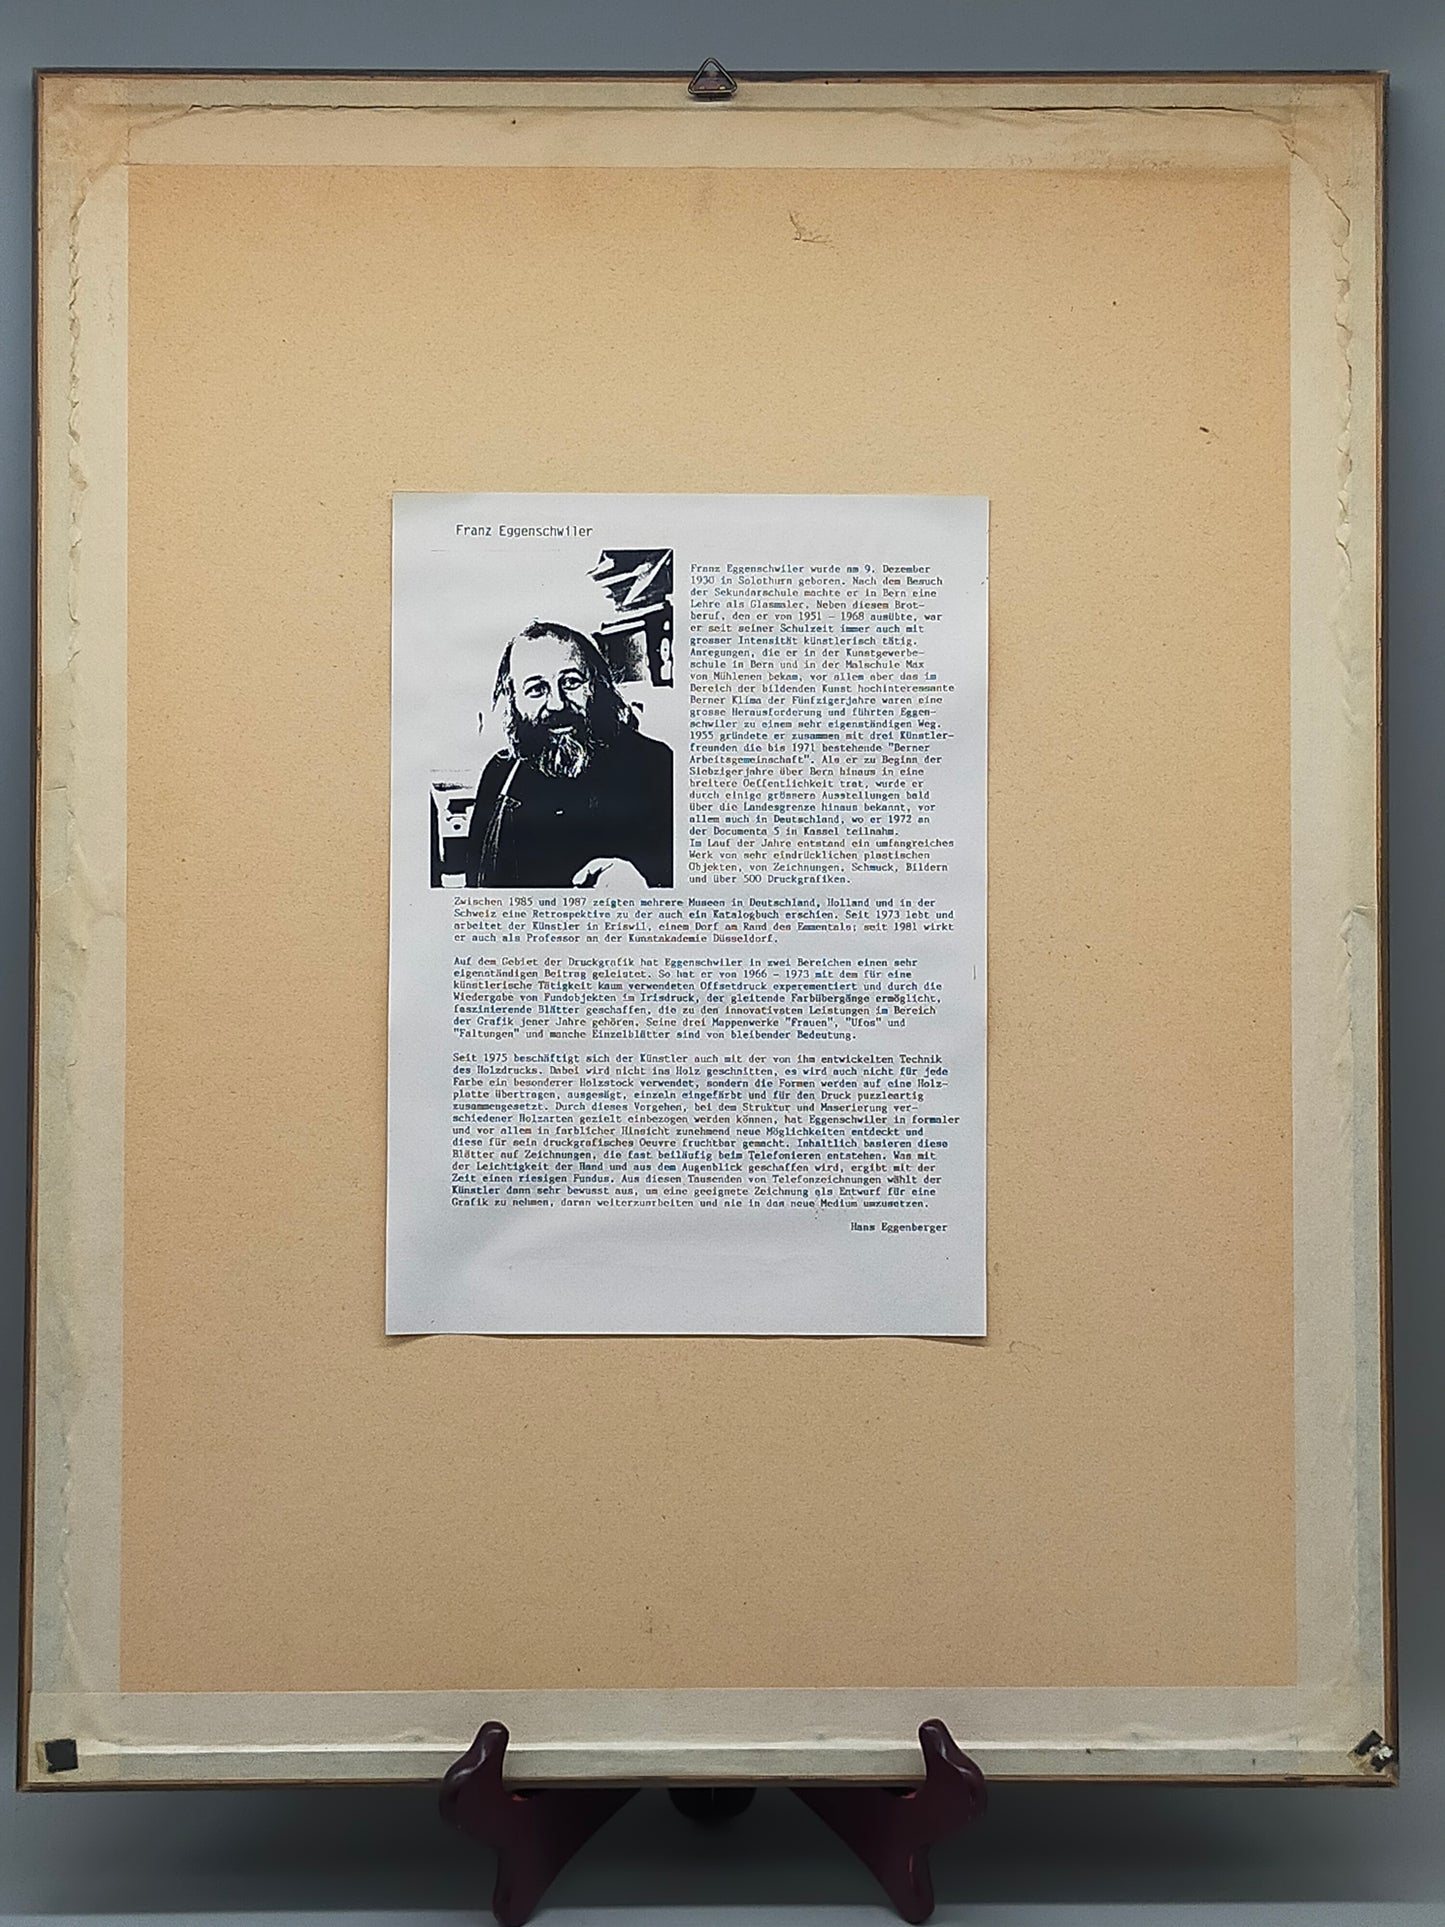 Franz Eggenschwiler
Franz Eggenschwiler wurde am 9. Dezember
1930 in Solothurn geboren. Nach dem Besuch
der Sekundarschule machte er in Bern eine
Lehre als Glasmaler. Neben diesem Brot-
beruf, den er von 1951 - 1968 ausübte, war
er seit seiner Schulzeit immer auch mit
grosser Intensität künstlerisch tätig.
Anregungen, die er in der Kunstgewerbe-
schule in Bern und in der Malschule Max
von Mühlenen bekam, vor allem aber das im
Bereich der bildenden Kunst hochinteressante
Berner Klima der Fünfzigerjahre waren eine
grosse Herausforderung und führten Eggen-
schwiler zu einem sehr eigenständigen Weg.
1955 gründete er zusammen mit drei Künstler-
freunden die bis 1971 bestehende "Berner
Arbeitsgemeinschaft". Als er zu Beginn der
Siebzigerjahre über Bern hinaus in eine
breitere Oeffentlichkeit trat, wurde er
durch einige grössere Ausstellungen bald
über die Landesgrenze hinaus bekannt, vor
allem auch in Deutschland, wo er 1972 an
der Documenta 5 in Kassel teilnahm.
Im Lauf der Jahre entstand ein umfangreiches
Werk von sehr eindrücklichen plastischen
Objekten, von Zeichnungen, Schmuck, Bildern
und über 500 Druckgrafiken.
Zwischen 1985 und 1987 zeigten mehrere Museen in Deutschland, Holland und in der
Schweiz eine Retrospektive zu der auch ein Katalogbuch erschien. Seit 1973 lebt und
arbeitet der Künstler in Eriswil, einem Dorf am Rand des Emmentals; seit 1981 wirkt
er auch als Professor an der Kunstakademie Düsseldorf.
Auf dem Gebiet der Druckgrafik hat Eggenschwiler in zwei Bereichen einen sehr
eigenständigen Beitrag geleistet. So hat er von 1966 - 1973 mit dem für eine
künstlerische Tätigkeit kaum verwendeten Offsetdruck experementiert und durch die
Wiedergabe von Fundobjekten im Irisdruck, der gleitende Farbübergänge ermöglicht,
faszinierende Blätter geschaffen, die zu den innovativsten Leistungen im Bereich
der Grafik jener Jahre gehören. Seine drei Mappenwerke "Frauen", "Ufos" und
"Faltungen" und manche Einzelblätter sind von bleibender Bedeutung.
Seit 1975 beschäftigt sich der Künstler auch mit der von ihm entwickelten Technik
des Holzdrucks. Dabei wird nicht ins Holz geschnitten, es wird auch nicht für jede
Farbe ein besonderer Holzstock verwendet, sondern die Formen werden auf eine Holz-
platte übertragen, ausgesägt, einzeln eingefärbt und für den Druck puzzleartig
zusammengesetzt. Durch dieses Vorgehen, bei dem Struktur und Maserierung ver-
schiedener Holzarten gezielt einbezogen werden können, hat Eggenschwiler in formaler
und vor allem in farblicher Hinsicht zunehmend neue Möglichkeiten entdeckt und
diese für sein druckgrafisches Oeuvre fruchtbar gemacht. Inhaltlich basieren diese
Blätter auf Zeichnungen, die fast beiläufig beim Telefonieren entstehen. Was mit
der Leichtigkeit der Hand und aus dem Augenblick geschaffen wird, ergibt mit der
Zeit einen riesigen Fundus. Aus diesen Tausenden von Telefonzeichnungen wählt der
Künstler dann sehr bewusst aus, um eine geeignete Zeichnung als Entwurf für eine
Grafik zu nehmen, daran weiterzuarbeiten und sie in das neue Medium umzusetzen.
Hans Eggenberger